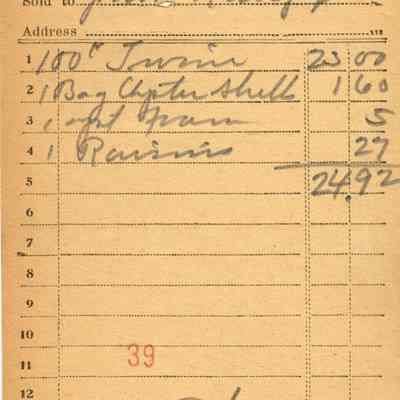 Sold to
Address
1 100# Twine 23 00
2 1 Bag Oyster Shells 1 60
3 1 foam 5
4 1 Raisins 27
5 24.92
6
7
8
9
10
11 39
12